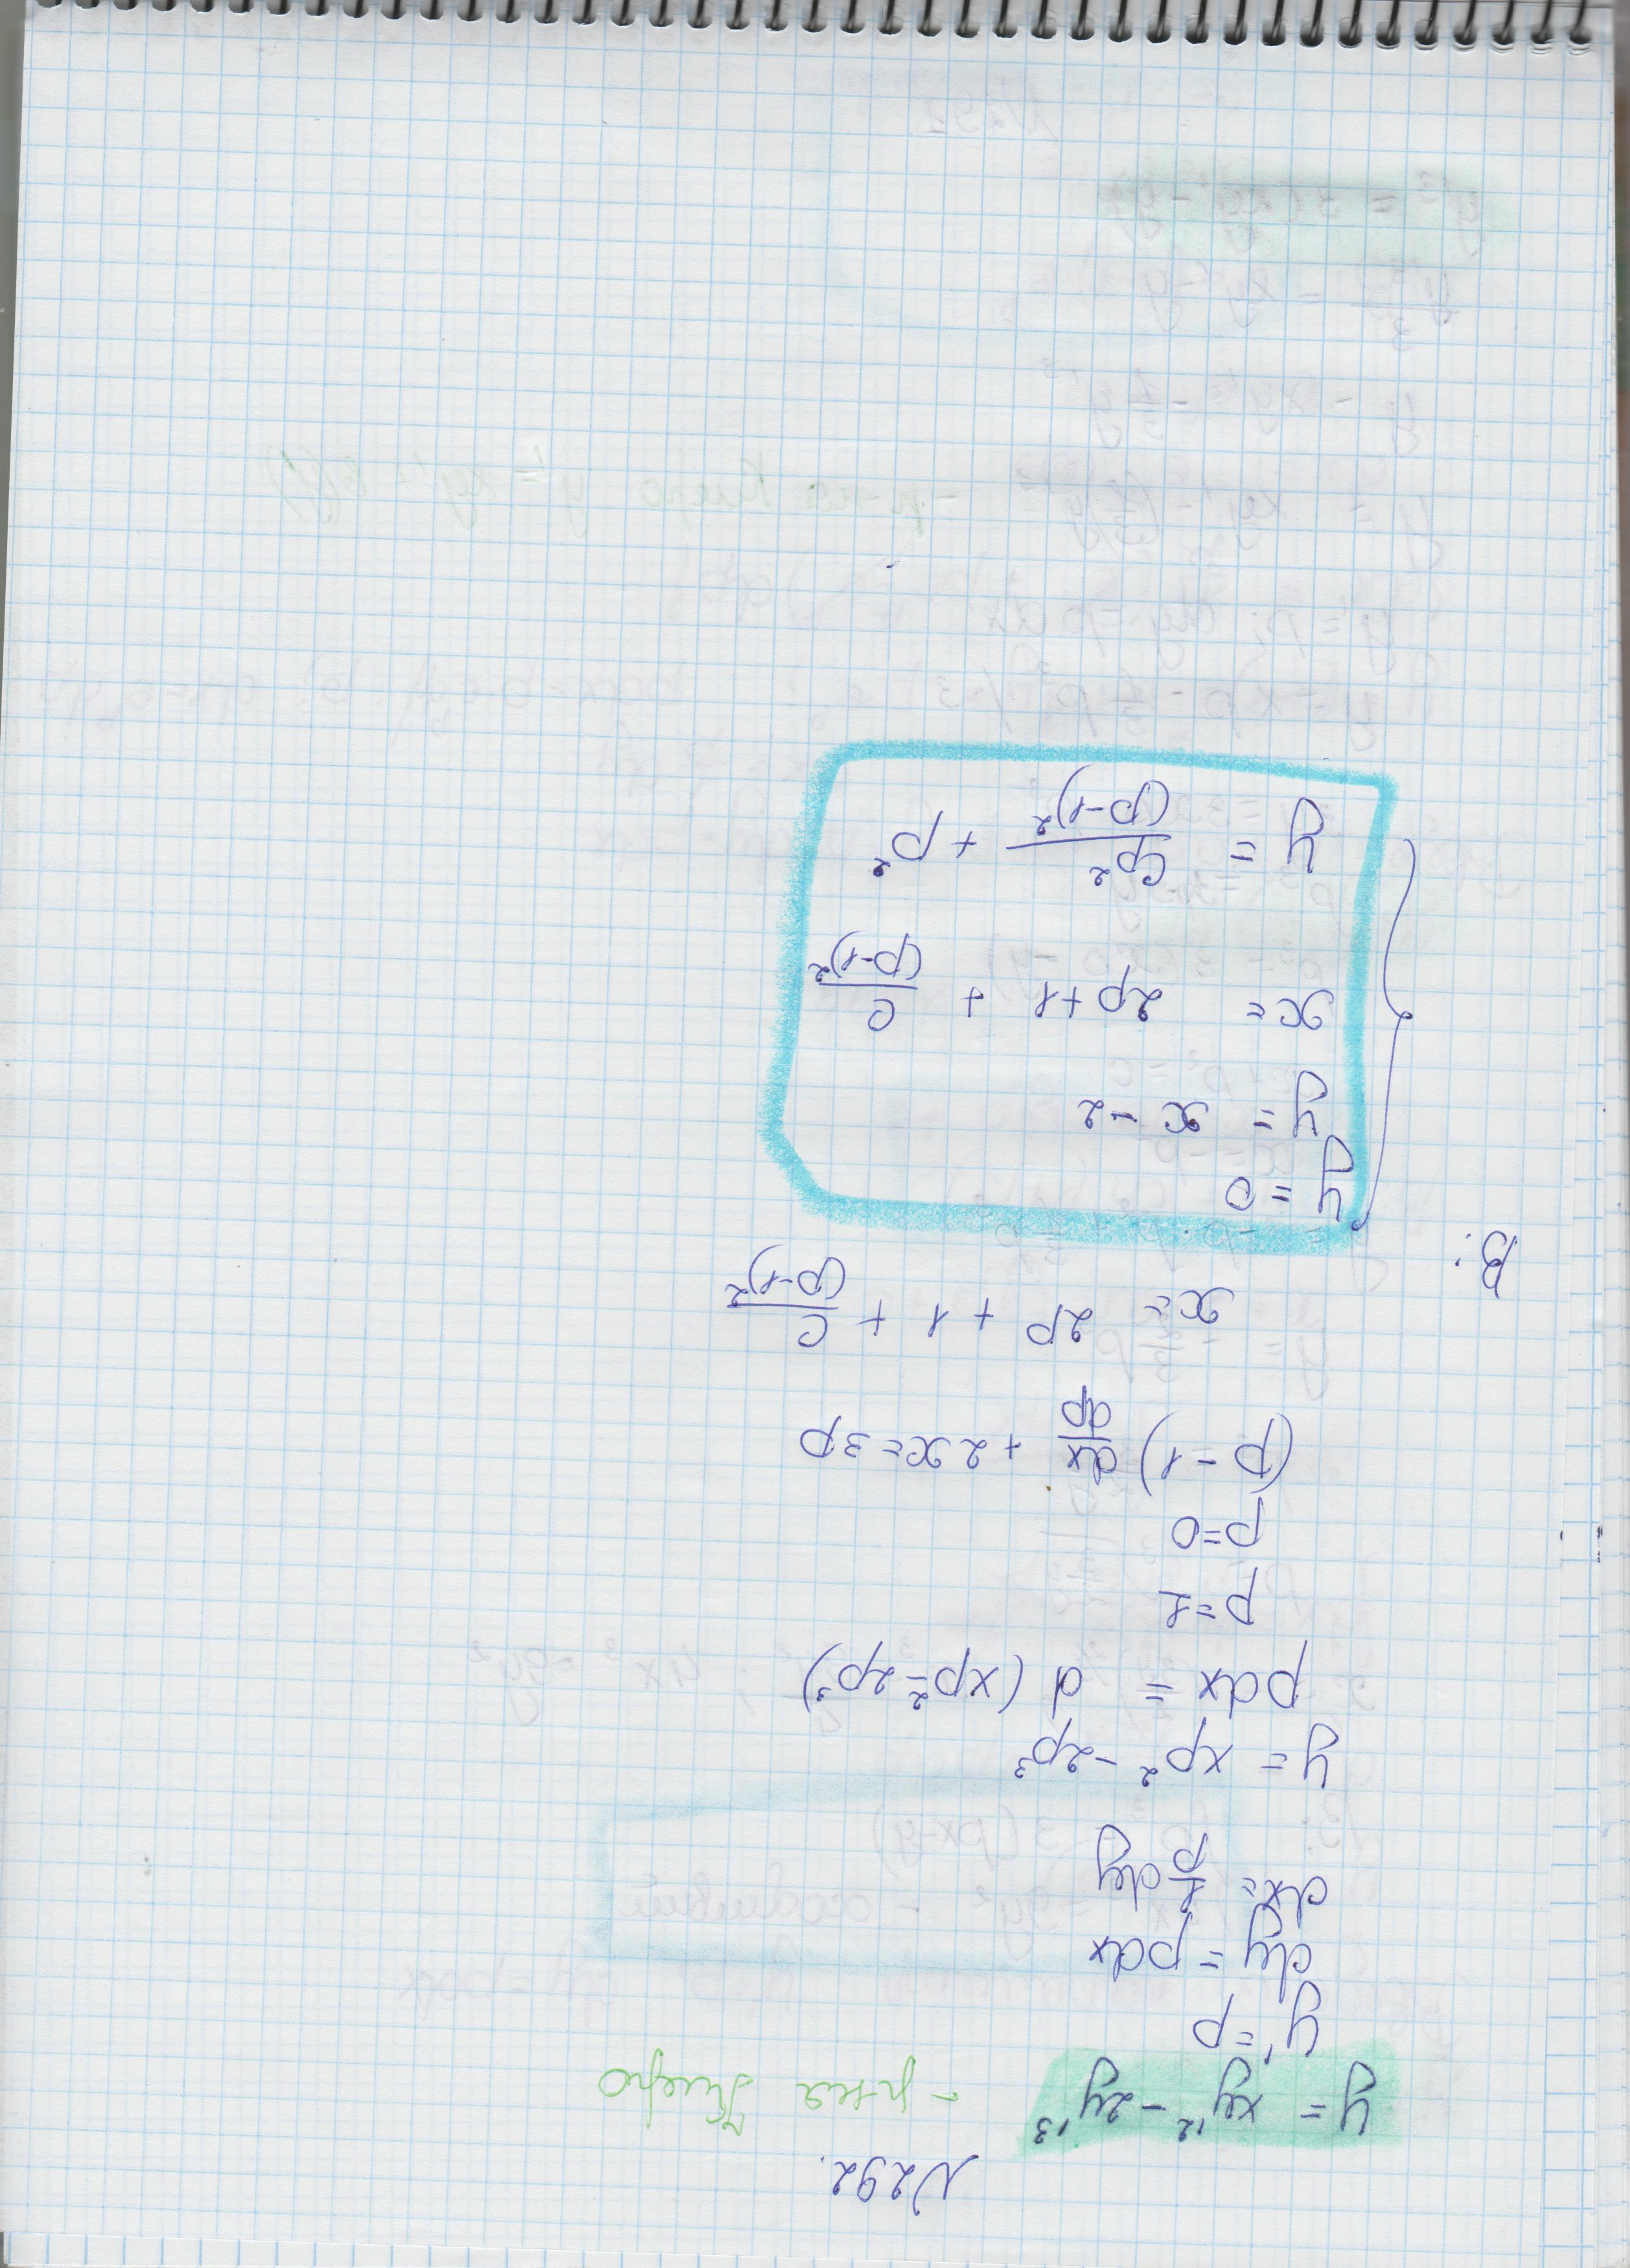 N292.
y = xy'² - 2y'³ - р-ня Клеро
y' = p
dy = pdx
dx = 1/p dy
y = xp² - 2p³
pdx = d (xp² = 2p³)
p = 1
p = 0
(p - 1) dx/dp + 2x = 3p
x = 2p + 1 + C/(p-1)²
В:
y = 0
y = x - 2
x = 2p + 1 + C/(p-1)²
y = Cp²/(p-1)² + p²